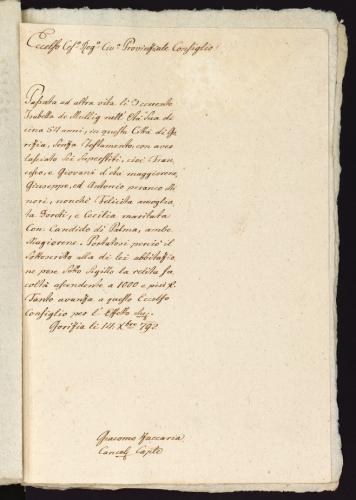 Eccelso Ces:° Reg:° Civ:° Provinciale Consiglio!
Passata ad altra vita li 3 corrente
Isabella de Mulliz nell' Età Sua di
circa 57 anni, in questa Città di Go-
rizia, Senza Testamento, con aver
lasciato Sei Superstiti, cioè Fran-
cesco, e Giovanni d'età maggiorene,
Giuseppe, ed Antonio peranco Mi-
nori, nonchè Felicita amoglia-
ta Foretti, e Cecilia maritata
Con: Candido di Palma, ambe
Magiorene. Portatosi perciò il
Sottoscritto alla di lei abbitazio-
ne pose Sotto Sigillo la relita fa-
coltà ascendente a 1000 e più
Tanto avanza a questo Eccelso
Consiglio per l' Effetto
Gorizia li 14. Xbre 792
Giacomo Zaccaria